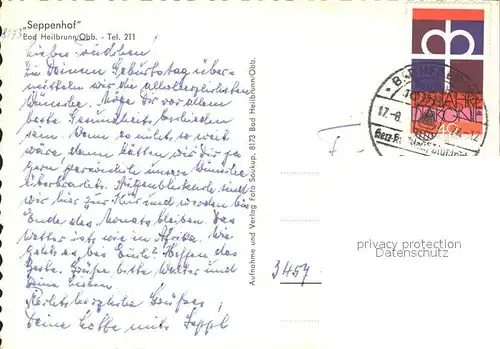 "Seppenhof"
Bad Heilbrunn/Obb. - Tel. 211
Liebes Trudchen!
Zu Deinem Geburtstag über-
mitteln wir die allerherzlichsten
Wünsche. Möge Dir vor allem
beste Gesundheit beschieden
sein. Wenn es nicht so weit
wäre, dann hätten wir Dir ja
gern persönlich unsere Wünsche
überbracht. Augenblicklich sind
wir hier zur Kur und werden bis
Ende des Monats bleiben. Das
Wetter ist wie in Afrika. Wie
geht es bei Euch? Hoffen das
Beste. Grüße bitte Walter und
Deine Lieben.
Recht herzliche Grüsse,
Deine Lotte mit Seppl
Aufnahme und Verlag Foto Soukup, 8173 Bad Heilbrunn/Obb.
125 JAHRE
DIAKONIE
17.-8.
3457
privacy protection
Datenschutz